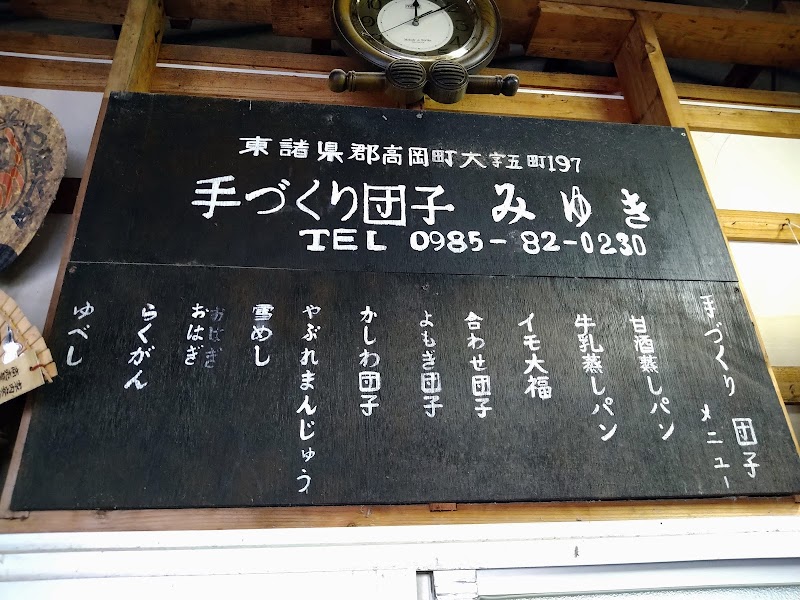 東諸県郡高岡町大字五町197
手づくり団子 みゆき
TEL 0985-82-0230
手づくり団子メニュー
甘酒蒸しパン
牛乳蒸しパン
イモ大福
合わせ団子
よもぎ団子
かしわ団子
やぶれまんじゅう
雪めし
おはぎ
おはぎ
らくがん
ゆべし